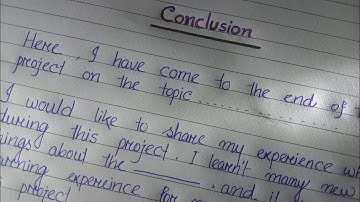 Conclusion
Here, I have come to the end of
project on the topic..............
I would like to share my experience
during this project. I learn't many new
about the ________ and it
experince for
project